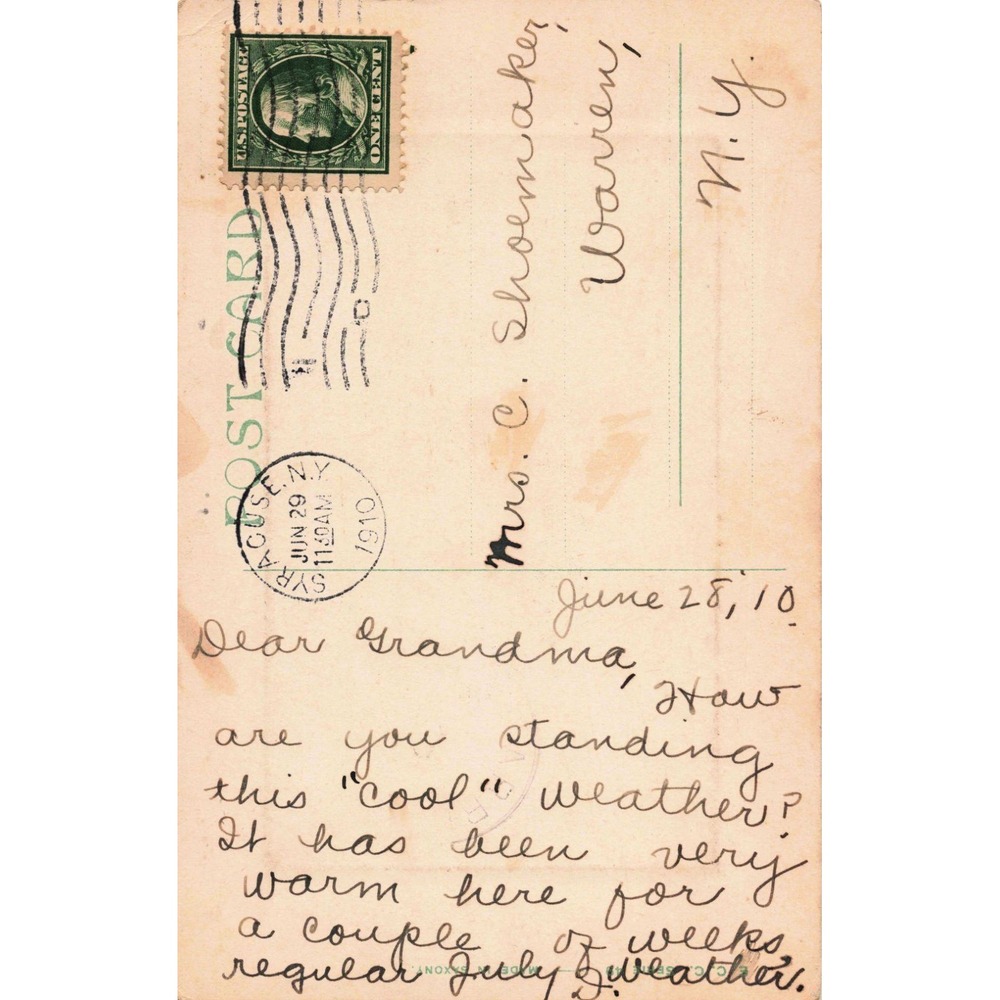 U.S. POSTAGE
ONE CENT
POST CARD
SYRACUSE, N.Y.
JUN 29
11 30 AM
1910
Mrs. C. Shoemaker,
Warren,
N. Y.
June 28, '10.
Dear Grandma,
How
are you standing
this "cool" weather?
It has been very
warm here for
a couple of weeks,
regular July weather.
MADE IN SAXONY.